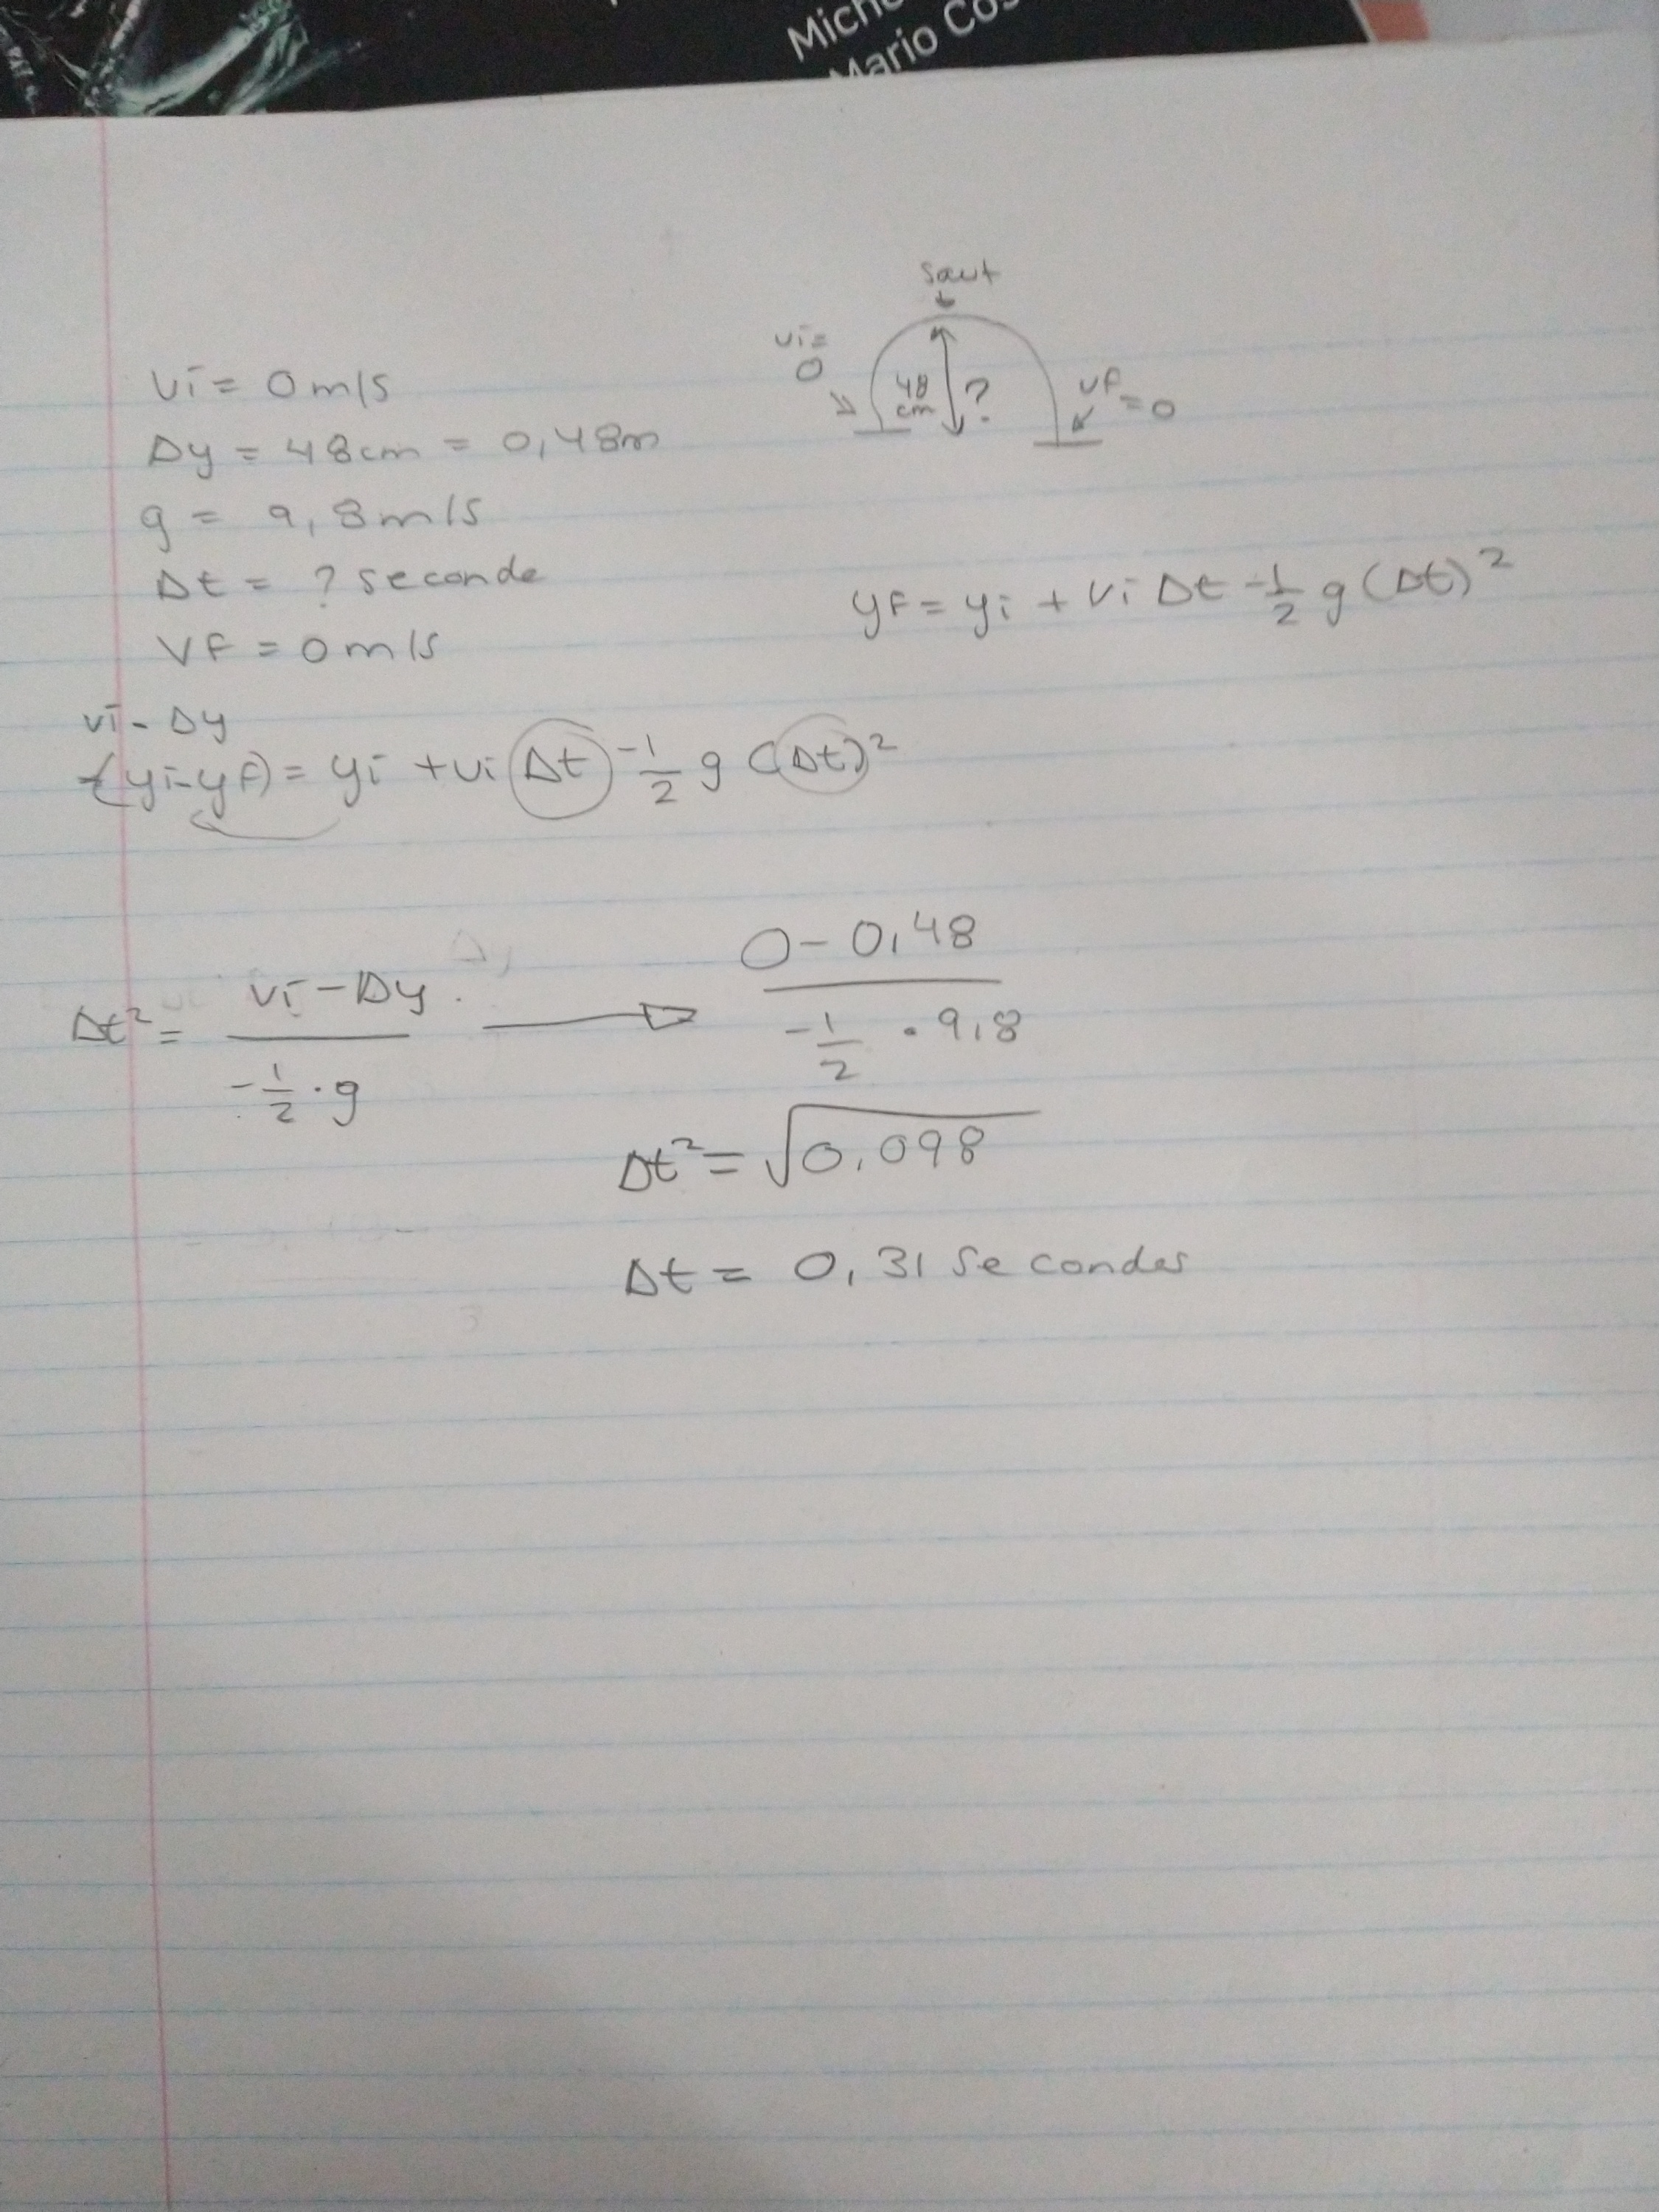 Mario Cos
saut
vi=
0
48
cm
?
vf
=0
vi = 0m/s
Δy = 48cm = 0,48m
g = 9,8m/s
Δt = ? seconde
VF = 0m/s
yf = yi + vi Δt -1/2 g (Δt)²
vi - Δy
-(yi-yf) = yi + vi Δt -1/2 g (Δt)²
Δt² = vi - Δy / -1/2 · g → 0 - 0,48 / -1/2 · 9,8
Δt² = √0,098
Δt = 0,31 secondes